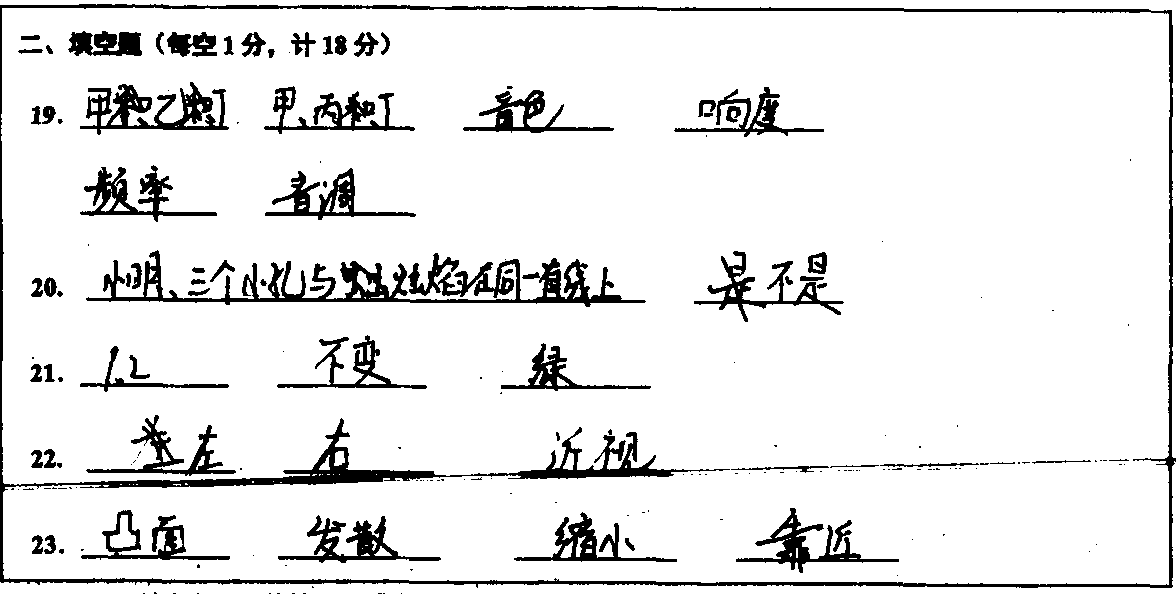 二、填空题（每空1分，计18分）
19. 甲和乙和丁 甲、丙和丁 音色 响度
频率 音调
20. 小明、三个小孔与 在同一直线上 是 不是
21. 1.2 不变 绿
22. 左 右 近视
23. 凸面 发散 缩小 靠近